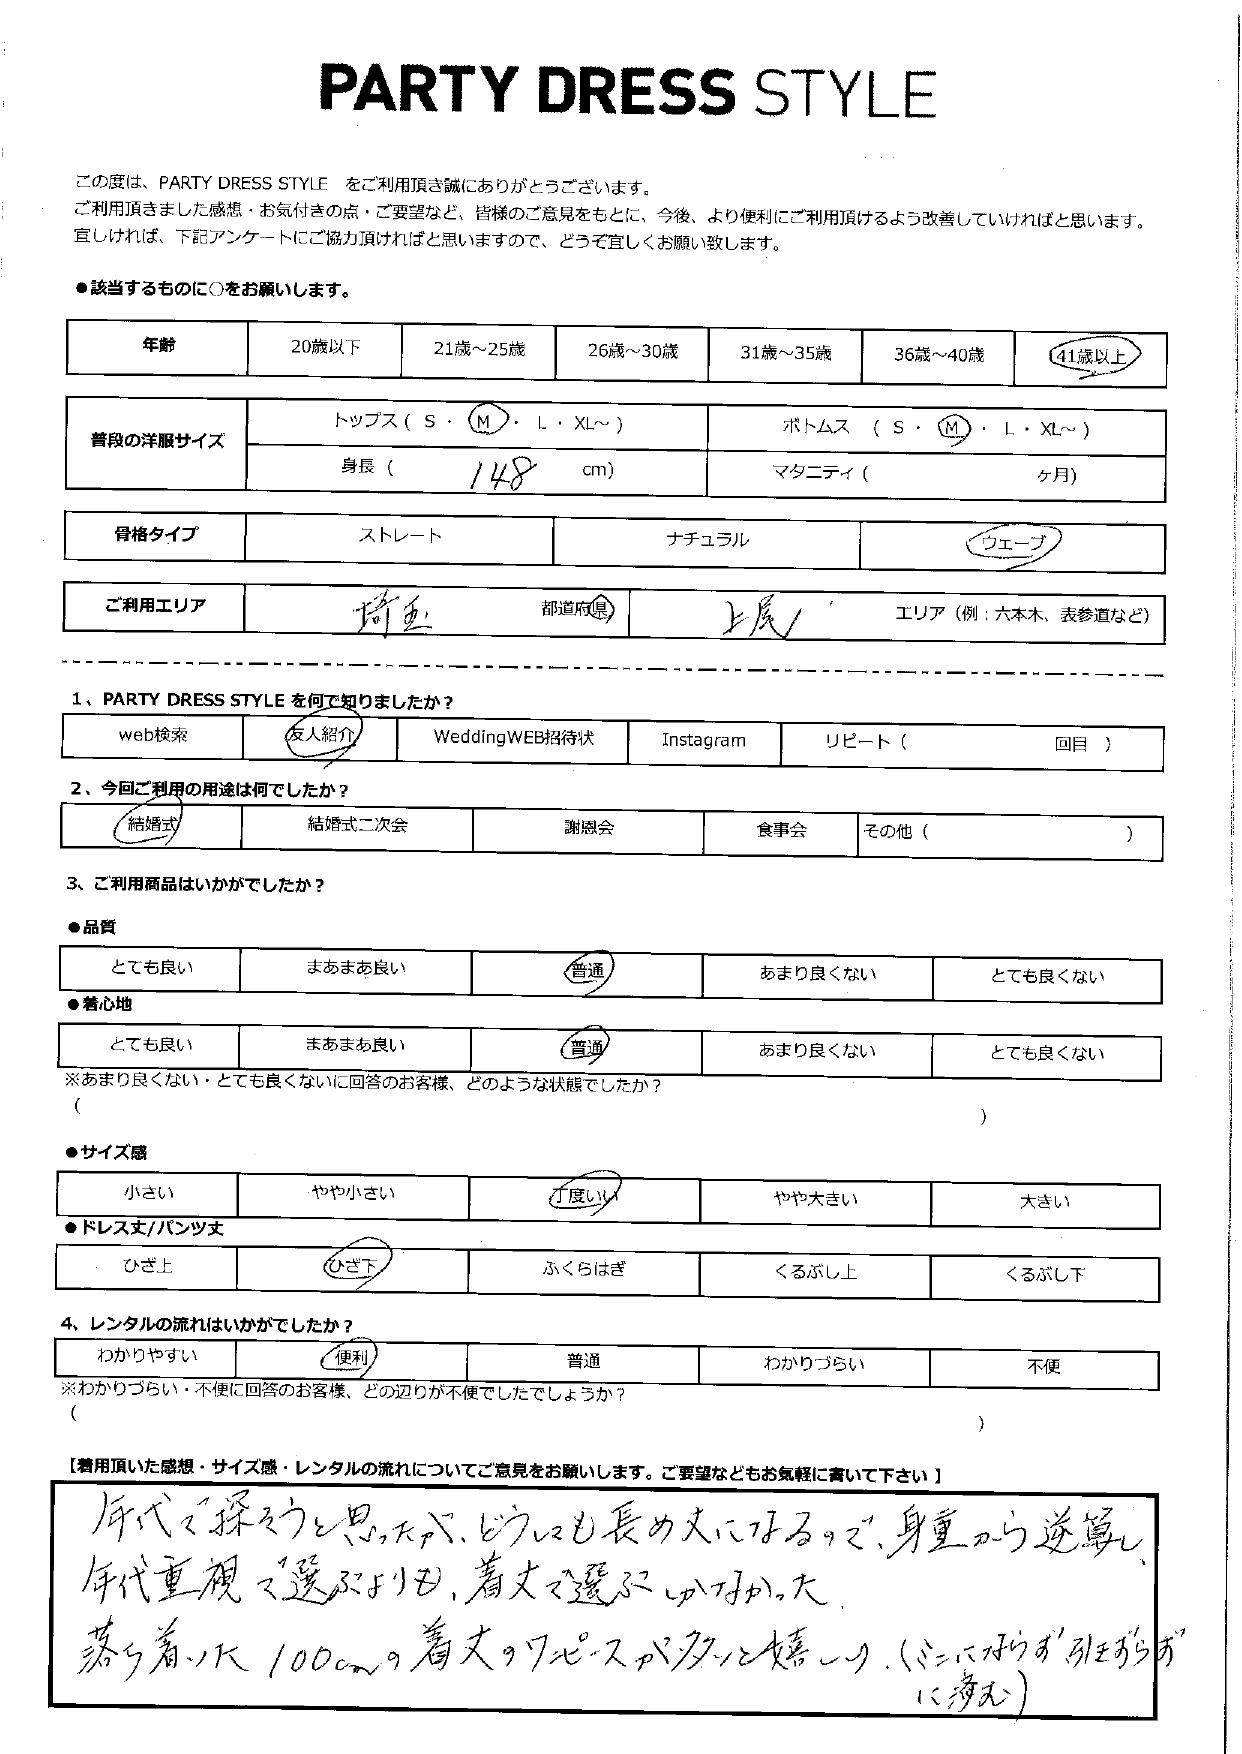 PARTY DRESS STYLE
この度は、PARTY DRESS STYLE をご利用頂き誠にありがとうございます。
ご利用頂きました感想・お気付きの点・ご要望など、皆様のご意見をもとに、今後、より便利にご利用頂けるよう改善していければと思います。
宜しければ、下記アンケートにご協力頂ければと思いますので、どうぞ宜しくお願い致します。
●該当するものに○をお願いします。
年齢 20歳以下 21歳～25歳 26歳～30歳 31歳～35歳 36歳～40歳 41歳以上
普段の洋服サイズ トップス ( S ・ M ・ L ・ XL～ ) ボトムス ( S ・ M ・ L ・ XL～ )
身長 ( 148 cm) マタニティ ( ケ月)
骨格タイプ ストレート ナチュラル ウェーブ
ご利用エリア 埼玉 都道府県 上尾 エリア（例：六本木、表参道など）
1、PARTY DRESS STYLE を何で知りましたか？
web検索 友人紹介 WeddingWEB招待状 Instagram リピート ( 回目 )
2、今回ご利用の用途は何でしたか？
結婚式 結婚式二次会 謝恩会 食事会 その他 ( )
3、ご利用商品はいかがでしたか？
●品質
とても良い まあまあ良い 普通 あまり良くない とても良くない
●着心地
とても良い まあまあ良い 普通 あまり良くない とても良くない
※あまり良くない・とても良くないに回答のお客様、どのような状態でしたか？
( )
●サイズ感
小さい やや小さい 丁度いい やや大きい 大きい
●ドレス丈/パンツ丈
ひざ上 ひざ下 ふくらはぎ くるぶし上 くるぶし下
4、レンタルの流れはいかがでしたか？
わかりやすい 便利 普通 わかりづらい 不便
※わかりづらい・不便に回答のお客様、どの辺りが不便でしたでしょうか？
( )
【着用頂いた感想・サイズ感・レンタルの流れについてご意見をお願いします。ご要望などもお気軽に書いて下さい 】
年代で探そうと思ったが、どうしても長め丈になるので、身重から逆算し、
年代重視で選ぶよりも、着丈で選ぶしかなかった
落ち着いた100cmの着丈のワンピースが多いと嬉しい.（ミニにならず引きずらず
に済む）